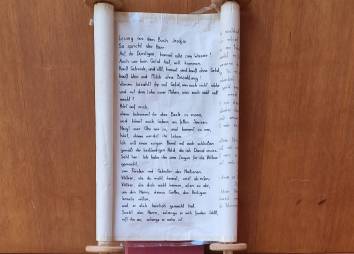 Lesung aus dem Buch Jesaja
So spricht der Herr:
Auf, ihr Durstigen, kommt alle zum Wasser!
Auch wer kein Geld hat, soll kommen.
Kauft Getreide, und eßt, kommt und kauft ohne Geld,
kauft Wein und Milch ohne Bezahlung!
Warum bezahlt ihr mit Geld, was euch nicht nährt,
und mit dem Lohn eurer Mühen, was euch nicht satt
macht?
Hört auf mich,
dann bekommt ihr das Beste zu essen,
und könnt euch laben an fetten Speisen.
Neigt euer Ohr mir zu, und kommt zu mir,
hört, dann werdet ihr leben.
Ich will einen ewigen Bund mit euch schließen
gemäß der beständigen Huld, die ich David erwies.
Seht her: Ich habe ihn zum Zeugen für die Völker
gemacht,
zum Fürsten und Gebieter der Nationen.
Völker, die du nicht kennst, wirst du rufen,
Völker, die dich nicht kennen, eilen zu dir,
um des Herrn, deines Gottes, des Heiligen
Israels willen,
weil er dich herrlich gemacht hat.
Sucht den Herrn, solange er sich finden läßt,
ruft ihn an, solange er nahe ist.